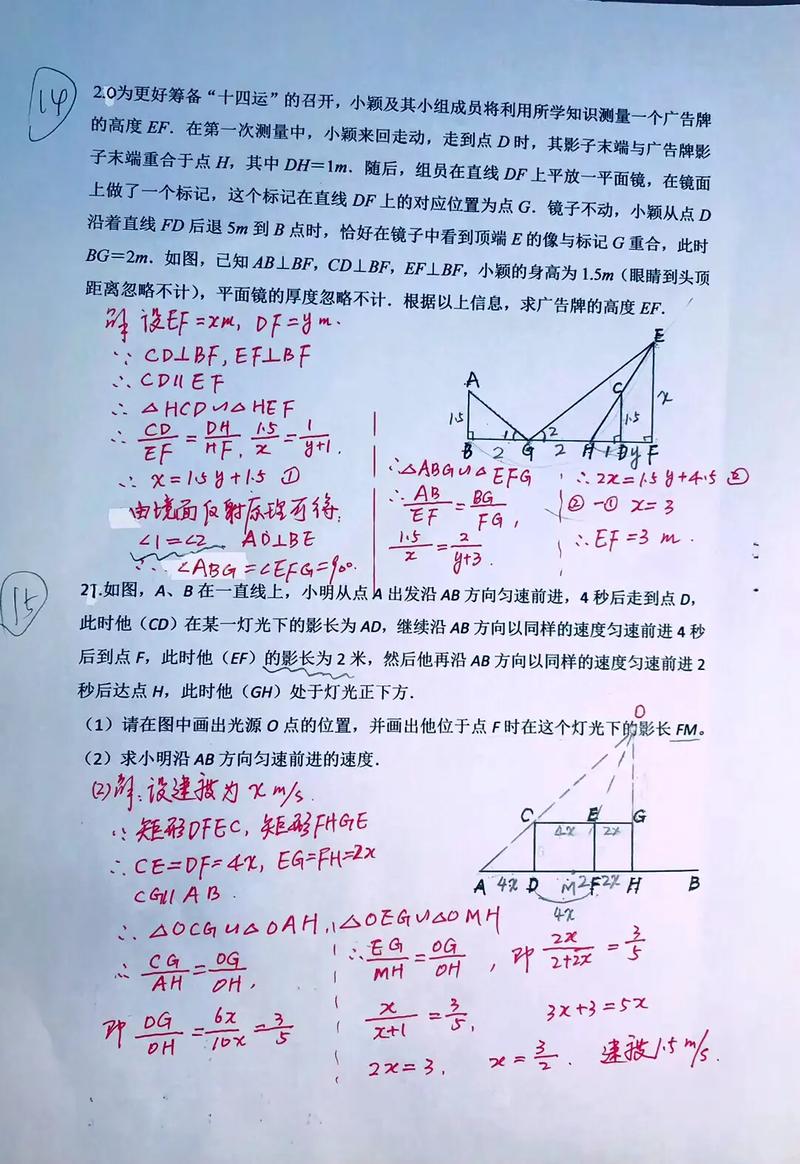 14
2.0为更好筹备“十四运”的召开，小颖及其小组成员将利用所学知识测量一个广告牌
的高度 EF．在第一次测量中，小颖来回走动，走到点 D 时，其影子末端与广告牌影
子末端重合于点 H，其中 DH＝1m．随后，组员在直线 DF 上平放一平面镜，在镜面
上做了一个标记，这个标记在直线 DF 上的对应位置为点 G．镜子不动，小颖从点 D
沿着直线 FD 后退 5m 到 B 点时，恰好在镜子中看到顶端 E 的像与标记 G 重合，此时
BG＝2m．如图，已知 AB⊥BF，CD⊥BF，EF⊥BF，小颖的身高为 1.5m（眼睛到头顶
距离忽略不计），平面镜的厚度忽略不计．根据以上信息，求广告牌的高度 EF．
解 设EF=xm, DF=ym.
∵ CD⊥BF, EF⊥BF
∴ CD∥EF
∴ △HCD∽△HEF
∴ CD/EF = DH/HF, 1.5/x = 1/y+1.
∴ x=1.5y+1.5 ①
由镜面反射原理可得：
∠1=∠2 AD⊥BE
∴ ∠ABG=∠EFG=90°.
∴△ABG∽△EFG
∴ AB/EF = BG/FG,
1.5/x = 2/y+3.
∴ 2x=1.5y+4.5 ②
②-① x=3
∴ EF=3 m.
E
A
C
x
1.5
1.5
1
2
B 2 G 2 H 1 D y F
15
21.如图，A、B 在一直线上，小明从点 A 出发沿 AB 方向匀速前进，4 秒后走到点 D，
此时他（CD）在某一灯光下的影长为 AD，继续沿 AB 方向以同样的速度匀速前进 4 秒
后到点 F，此时他（EF）的影长为 2 米，然后他再沿 AB 方向以同样的速度匀速前进 2
秒后达点 H，此时他（GH）处于灯光正下方．
（1）请在图中画出光源 O 点的位置，并画出他位于点 F 时在这个灯光下的影长 FM。
（2）求小明沿 AB 方向匀速前进的速度．
O
C E G
4x 2x
A 4x D M 2 F 2x H B
4x
(2)解：设速度为 x m/s.
∵ 矩形DFEC, 矩形FHGE
∴ CE=DF=4x, EG=FH=2x
CG∥AB
∴ △OCG∽△OAH, △OEG∽△OMH
∴ CG/AH = OG/OH,
即 OG/OH = 6x/10x = 3/5
∴ EG/MH = OG/OH, 即 2x/2+2x = 3/5
x/x+1 = 3/5, 3x+3=5x
2x=3, x=3/2. 速度1.5m/s.